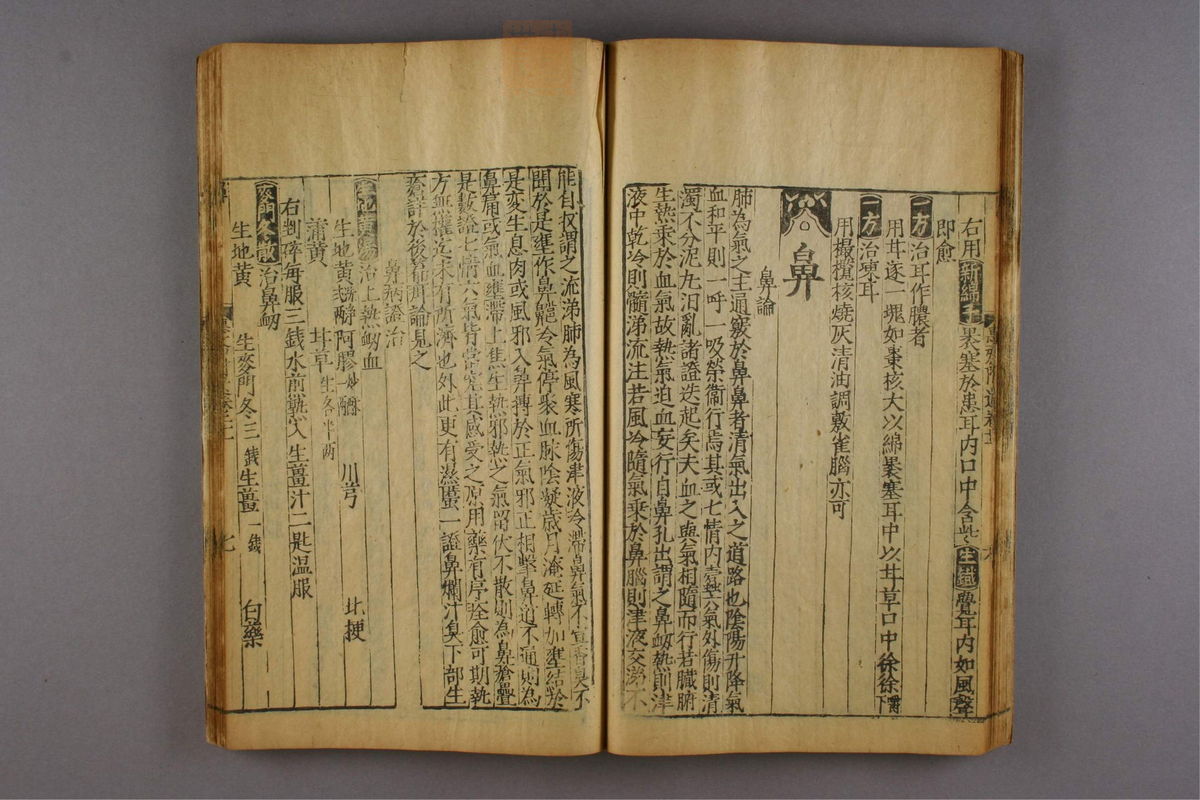 右用新綿子裹塞於患耳内口中含些生鐵覺耳内如風聲
即愈
一方治耳作膿者
用耳逐一塊如棗核大以綿裹塞耳中以甘草口中徐徐嚼下
一方治凍耳
用橄欖核燒灰清油調敷雀腦亦可
鼻
鼻論
肺為氣之主通竅於鼻鼻者清氣出入之道路也陰陽升降氣
血和平則一呼一吸榮衛行焉其或七情内六氣外傷則清
濁不分泥丸汩亂諸證迭起矣夫血之與氣相隨而行若臟腑
生熱乘於血氣故熱氣迫血妄行自鼻孔出謂之鼻衂熱則津
液中乾冷則隨涕流注若風冷隨氣乘於鼻腦則津液交涕不
能自收謂之流涕肺為風寒所傷津液冷滯鼻氣不宣香臭不
聞於是壅作鼻齆冷氣停聚血脉陰凝歲月淹延轉加壅結於
是變生息肉或風邪入鼻搏於正氣邪正相擊鼻道不通則為
鼻痛或氣血壅滯上焦生熱邪熱之氣留伏不散則為鼻瘡疊
是數證七情六氣皆當究其感受之原用藥有序詮愈可期執
方無權迄未有所濟也外此更有濕䘌一證鼻爛汁臭下部生
瘡評於後論見之
鼻病證治
生地黄湯治上熱衂血
生地黄 阿膠炒一 川芎 北梗
蒲黄 甘草生各半两
右剉碎每服三錢水煎熟入生薑汁二匙温服
麥門冬散治鼻衂
生地黄 生麥門冬三錢 生薑一錢 白藥